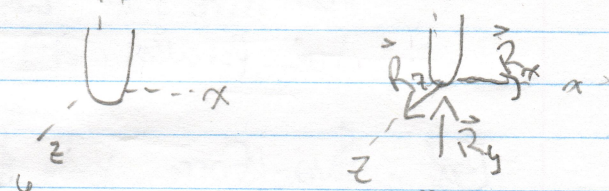 x
z
R⃗z R⃗x x
R⃗y
z